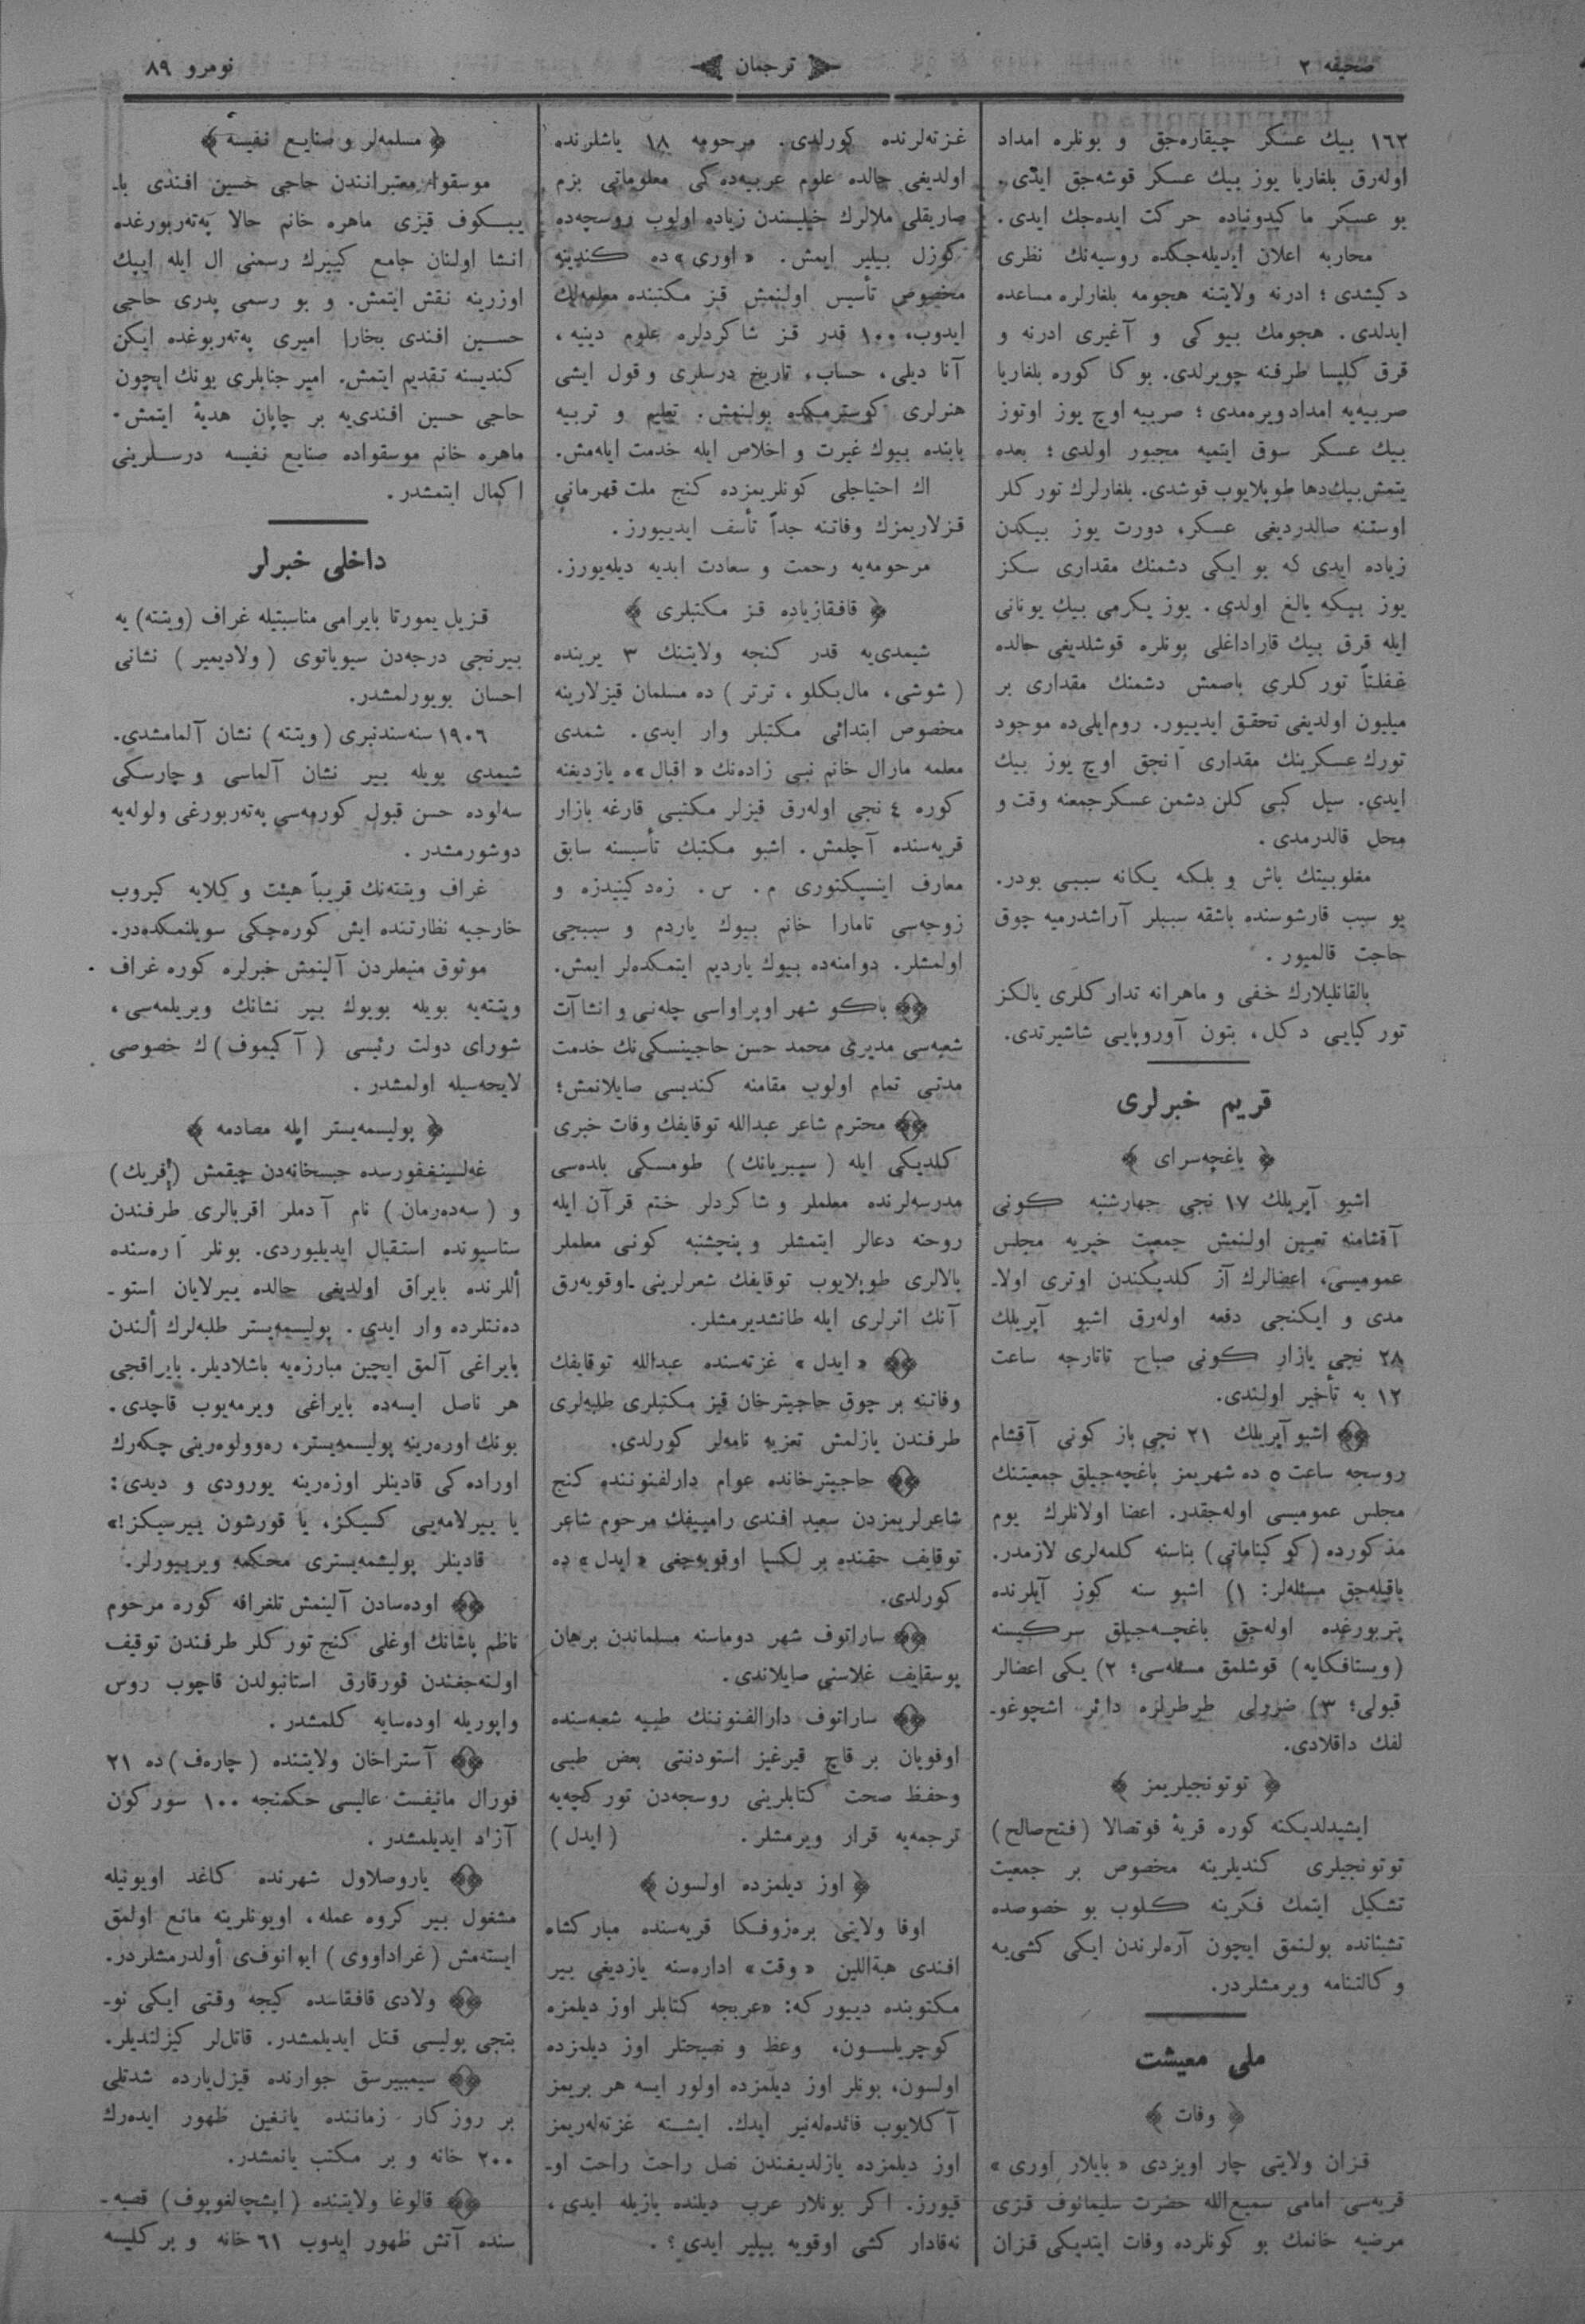 صحیفه ٢
ترجمان
نومرو ٨٩
١٦٢ بیك عسكر چیقاره‌جق و بونلره امداد
اوله‌رق بلغاریا یوز بیك عسكر قوشه‌جق ایدی.
بو عسكر ماكیدونیاده حركت ایده‌جك ایدی.
محاربه اعلان ایدیله‌جكده روسیه‌نك نظری
دكیشدی؛ ادرنه ولایتنه هجومه بلغارلره مساعده
ایدلدی. هجومك بیوكی و آغیری ادرنه و
قرق كلیسا طرفنه چویرلدی. بوكا كوره بلغاریا
صربیه‌یه امداد ویره‌مدی؛ صربیه اوچ یوز اوتوز
بیك عسكر سوق ایتمیه مجبور اولدی؛ بعده
یتمش بیك دها طوپلایوب قوشدی. بلغارلرك توركلر
اوستنه صالدردیغی عسكر، دورت یوز بیكدن
زیاده ایدی كه بو ایكی دشمنك مقداری سكز
یوز بیكه بالغ اولدی. یوز یكرمی بیك یونانی
ایله قرق بیك قاراداغلی بونلره قوشلدیغی حالده
غفلتاً توركلری باصمش دشمنك مقداری بر
میلیون اولدیغی تحقق ایدییور. روم‌ایلی‌ده موجود
تورك عسكرینك مقداری آنجق اوچ یوز بیك
ایدی. سیل كبی كلن دشمن عسكر جمعنه وقت و
محل قالدرمدی.
مغلوبیتك باش و بلكه یكانه سببی بودر.
بو سبب قارشوسنده باشقه سببلر آراشدرمیه چوق
حاجت قالمیور.
بالقانلیلارك خفی و ماهرانه تداركلری یالكز
توركیایی دكل، بتون آوروپایی شاشیرتدی.
قریم خبرلری
باغچه‌سرای
اشبو آپریلك ١٧ نجی چهارشنبه كونی
آقشامنه تعیین اولنمش جمعیت خیریه مجلس
عمومیسی، اعضالرك آز كلدیكندن اوتری اولا-
مدی و ایكنجی دفعه اوله‌رق اشبو آپریلك
٢٨ نجی بازار كونی صباح تاتارجه ساعت
١٢ یه تأخیر اولندی.
اشبو آپریلك ٢١ نجی باز كونی آقشام
روسجه ساعت ٥ ده شهریمز باغچه‌جیلق جمعیتنك
مجلس عمومیسی اوله‌جقدر. اعضا اولانلرك یوم
مذكورده (كوكیناماتی) بناسنه كلمه‌لری لازمدر.
باقیله‌جق مسئله‌لر: ١) اشبو سنه كوز آیلرنده
پتربورغده اوله‌جق باغچه‌جیلق سركیسنه
(ویستافكایه) قوشلمق مسئله‌سی؛ ٢) یكی اعضالر
قبولی؛ ٣) ضررلی طرطرلره دائر اشچوغو-
لفك داقلادی.
توتونجیلریمز
ایشیدلدیكنه كوره قریۀ فوتصالا (فتح صالح)
توتونجیلری كندیلرینه مخصوص بر جمعیت
تشكیل ایتمك فكرینه كلوب بو خصوصده
تشبثانده بولنمق ایچون آره‌لرندن ایكی كشی‌یه
وكالتنامه ویرمشلردر.
ملی معیشت
وفات
قزان ولایتی چار اویزدی «بایلار اوری»
قریه‌سی امامی سمیع‌الله حضرت سلیمانوف قزی
مرضیه خانمك بو كونلرده وفات ایتدیكی قزان
غزته‌لرنده كورلدی. مرحومه ١٨ یاشلرنده
اولدیغی حالده علوم عربیه‌ده‌كی معلوماتی بزم
صاریقلی ملالرك خیلیسندن زیاده اولوب روسچه‌ده
كوزل بیلیر ایمش. «اوری» ده كندینه
مخصوص تأسیس اولنمش قز مكتبنده معلمه‌لك
ایدوب، ١٠٠ قدر قز شاكردلره علوم دینیه،
آنا دیلی، حساب، تاریخ درسلری و قول ایشی
هنرلری كوسترمكده بولنمش. تعلیم و تربیه
بابنده بیوك غیرت و اخلاص ایله خدمت ایله‌مش.
اك احتیاجلی كونلریمزده كنج ملت قهرمانی
قزلاریمزك وفاتنه جداً تأسف ایدییورز.
مرحومه‌یه رحمت و سعادت ابدیه دیله‌یورز.
قافقازیاده قز مكتبلری
شیمدی‌یه قدر كنجه ولایتنك ٣ یرینده
(شوشی، مال‌بكلو، ترتر) ده مسلمان قیزلارینه
مخصوص ابتدائی مكتبلر وار ایدی. شمدی
معلمه مارال خانم نبی زاده‌نك «اقبال»ه یازدیغنه
كوره ٤ نجی اوله‌رق قیزلر مكتبی قارغه بازار
قریه‌سنده آچلمش. اشبو مكتبك تأسیسنه سابق
معارف اینسپكتوری م. س. زه‌دكینیدزه و
زوجه‌سی تامارا خانم بیوك یاردم و سببجی
اولمشلر. دوامنه‌ده بیوك یاردیم ایتمكده‌لر ایمش.
باكو شهر اوپراواسی چله‌نی و انشاآت
شعبه‌سی مدیری محمد حسن حاجینسكی‌نك خدمت
مدتی تمام اولوب مقامنه كندیسی صایلانمش؛
محترم شاعر عبدالله توقایفك وفات خبری
كلدیكی ایله (سیبریانك) طومسكی بلده‌سی
مدرسه‌لرنده معلملر و شاكردلر ختم قرآن ایله
روحنه دعالر ایتمشلر و پنجشنبه كونی معلملر
بالالری طوپلایوب توقایفك شعرلرینی اوقویه‌رق
آنك اثرلری ایله طانشدیرمشلر.
«ایدل» غزته‌سنده عبدالله توقایفك
وفاتنه بر چوق حاجیترخان قیز مكتبلری طلبه‌لری
طرفندن یازلمش تعزیه نامه‌لر كورلدی.
حاجیترخانده عوام دارلفنوننده كنج
شاعرلریمزدن سعید افندی رامییفك مرحوم شاعر
توقایف حقنده بر لكسیا اوقویه‌جغی «ایدل» ده
كورلدی.
ساراتوف شهر دوماسنه مسلماندن برهان
یوسقایف غلاسنی صایلاندی.
ساراتوف دارالفنوننك طبیه شعبه‌سنده
اوقویان بر قاچ قیرغیز استودنتی بعض طبی
و حفظ صحت كتابلرینی روسجه‌دن توركچه‌یه
ترجمه‌یه قرار ویرمشلر. (ایدل)
اوز دیلمزده اولسون
اوفا ولایتی بره‌زوفكا قریه‌سنده مباركشاه
افندی هبةاللین «وقت» اداره‌سنه یازدیغی بیر
مكتوبنده دییوركه: «عربجه كتابلر اوز دیلمزه
كوچریلسون، وعظ و نصیحتلر اوز دیلمزده
اولسون، بونلر اوز دیلمزده اولور ایسه هر بریمز
آكلایوب فائده‌له‌نیر ایدك. ایشته غزته‌له‌ریمز
اوز دیلمزده یازلدیغندن نصل راحت راحت او-
قیورز. اكر بونلار عرب دیلنده یازیله ایدی،
نه‌قادار كشی اوقویه بیلیر ایدی؟.
مسلمه‌لر و صنایع نفیسه
موسقوا معتبرانندن حاجی حسین افندی با-
یبسكوف قیزی ماهره خانم حالا په‌ته‌ربورغده
انشا اولنان جامع كبیرك رسمنی ال ایله ایپك
اوزرینه نقش ایتمش. و بو رسمی پدری حاجی
حسین افندی بخارا امیری په‌ته‌ربوغده ایكن
كندیسنه تقدیم ایتمش. امیر جنابلری بونك ایچون
حاجی حسین افندی‌یه بر چاپان هدیۀ ایتمش.
ماهره خانم موسقواده صنایع نفیسه درسلرینی
اكمال ایتمشدر.
داخلی خبرلر
قزیل یمورتا بایرامی مناسبتیله غراف (ویتته) یه
بیرنجی درجه‌دن سیویاتوی (ولادیمیر) نشانی
احسان بویورلمشدر.
١٩٠٦ سنه‌سندنبری (ویتته) نشان آلمامشدی.
شیمدی بویله بیر نشان آلماسی و چارسكی
سه‌لوده حسن قبول كورمه‌سی په‌ته‌ربورغی ولوله‌یه
دوشورمشدر.
غراف ویتته‌نك قریباً هیئت وكلایه كیروب
خارجیه نظارتنده ایش كوره‌چكی سویلنمكده‌در.
موثوق منبعلردن آلینمش خبرلره كوره غراف
ویتته‌یه بویله بویوك بیر نشانك ویریلمه‌سی،
شورای دولت رئیسی (آكیموف)ك خصوصی
لایحه‌سیله اولمشدر.
پولیسمه‌یستر ایله مصادمه
غه‌لسینغفورسده حبسخانه‌دن چیقمش (فریك)
و (سه‌ده‌رمان) نام آدملر اقربالری طرفندن
ستاسیونده استقبال ایدیلیوردی. بونلر آره‌سنده
أللرنده بایراق اولدیغی حالده ییرلایان استو-
ده‌نتلرده وار ایدی. پولیسمه‌یستر طلبه‌لرك ألندن
بایراغی آلمق ایچین مبارزه‌یه باشلادیلر. بایراقجی
هر ناصل ایسه‌ده بایراغی ویرمه‌یوب قاچدی.
بونك اوزه‌رینه پولیسمه‌یستر، ره‌وولوه‌رینی چكه‌رك
اوراده‌كی قادینلر اوزه‌رینه یورودی و دیدی:
یا ییرلامه‌یی كسیكز، یا قورشون ییرسیكز!»
قادینلر پولیشمه‌یستری محكمه ویرییورلر.
اوده‌سادن آلینمش تلغرافه كوره مرحوم
ناظم پاشانك اوغلی كنج توركلر طرفندن توقیف
اولنه‌جغندن قورقارق استانبولدن قاچوب روس
واپوریله اوده‌سایه كلمشدر.
آستراخان ولایتنده (چاره‌ف) ده ٢١
فورال مانیفست عالیسی حكمنجه ١٠٠ سورگون
آزاد ایدیلمشدر.
یاروصلاول شهرنده كاغد اویونیله
مشغول بیر كروه عمله، اویونلرینه مانع اولمق
ایسته‌مش (غراداووی) ایوانوف‌ی أولدرمشلردر.
ولادی قافقاسده كیجه وقتی ایكی نو-
بتجی پولیسی قتل ایدیلمشدر. قاتل‌لر كیزلندیلر.
سیمبیرسق جوارنده قیزل‌یارده شدتلی
بر روزكار زماننده یانغین ظهور ایده‌رك
٢٠٠ خانه و بر مكتب یانمشدر.
قالوغا ولایتنده (ایشچه‌لغوپوف) قصبه-
سنده آتش ظهور ایدوب ٦١ خانه و بر كلیسه